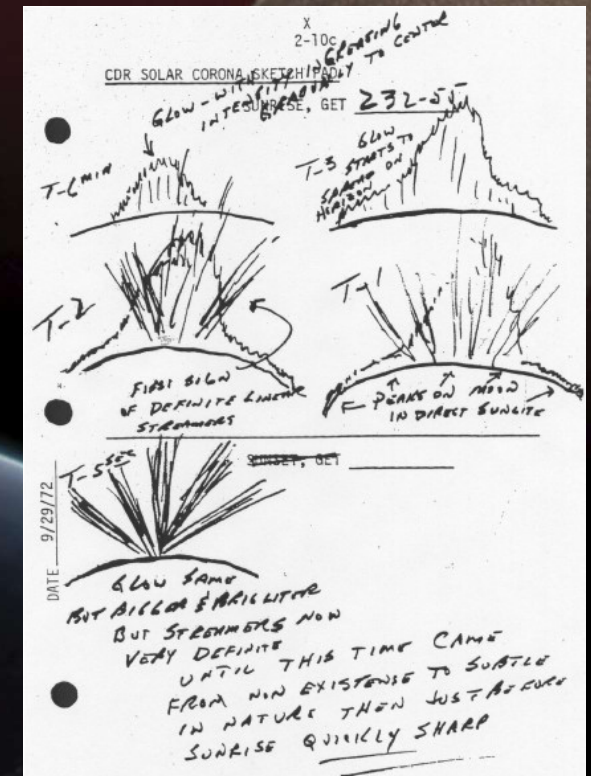 X
2-10c
CDR SOLAR CORONA SKETCH PAD
GLOW - WITH
INTENSITY INCREASING
GRADUALLY TO CENTOR
SUNRISE, GET 232-55
T-6 MIN
T-3
GLOW
STARTS TO
SPREAD ON
HORIZON
T-2
T-1
FIRST SIGN
OF DEFINITE LINEAR
STREAMERS
PEAKS ON MOON
IN DIRECT SUNLITE
SUNSET, GET
T-5 SEC
DATE 9/29/72
GLOW SAME
BUT BIGGER & BRIGHTER
BUT STREAMERS NOW
VERY DEFINITE
UNTIL THIS TIME CAME
FROM NON EXISTENSE TO SUBTLE
IN NATURE THEN JUST BEFORE
SUNRISE QUICKLY SHARP